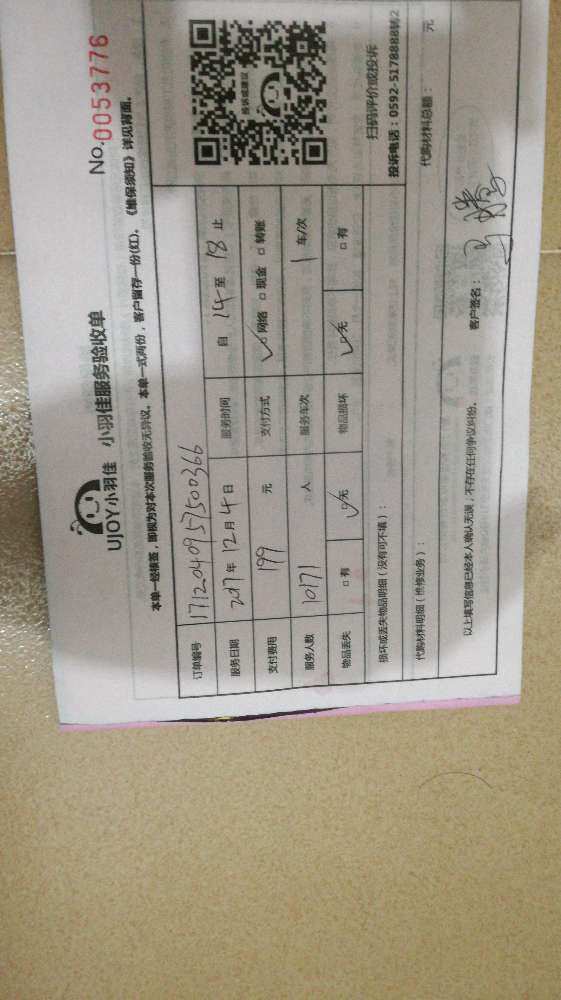 UJOY小羽佳 小羽佳服务验收单 No.0053776
本单一经核签，即视为对本次服务验收无异议。本单一式两份，客户留存一份(红)。《维保须知》详见背面。
订单编号 1712040957500366
服务日期 2017年12月4日 服务时间 自 14 至 18 止
支付费用 199 元 支付方式 ✓网络 □现金 □转账
服务人数 10171 人 服务车次 1 车/次
物品丢失 □有 ✓无 物品损坏 ✓无 □有
投诉或建议
扫码评价或投诉
投诉电话：0592-5178888转2
损坏或丢失物品明细（没有可不填）：
代购材料明细（维修业务）： 代购材料总额： 元
以上填写信息已经本人确认无误，不存在任何争议纠纷。 客户签名：